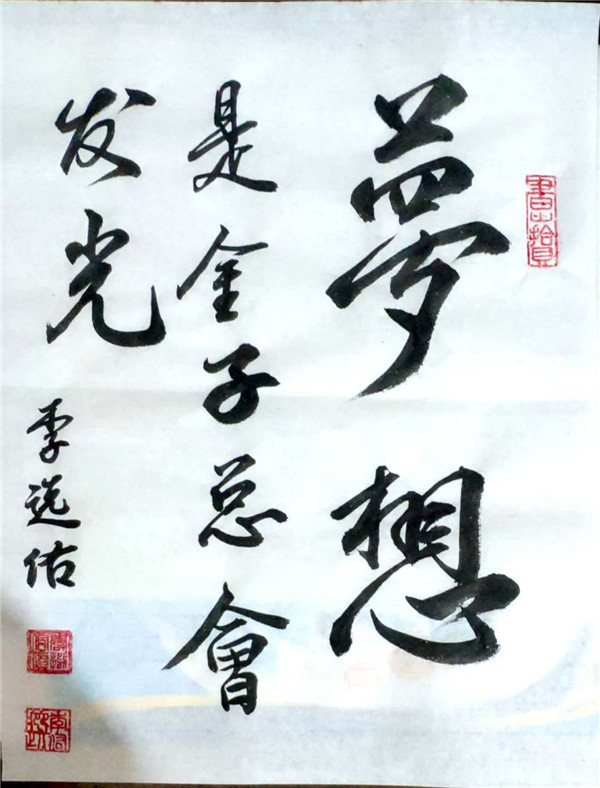 夢想
是金子总會
发光
李选佑